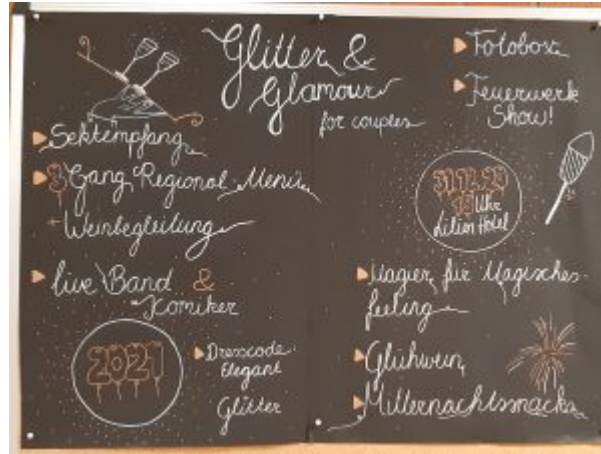 Glitter &
Glamour
for couples
Sektempfang
3 Gang Regional Menü
+ Weinbegleitung
live Band &
Komiker
2021
Dresscode:
Elegant
Glitter
Fotobox
Feuerwerk
Show!
31.12.20
Uhr
Lilien Hotel
Magier für Magisches
feeling
Glühwein
Mitternachtssnacks